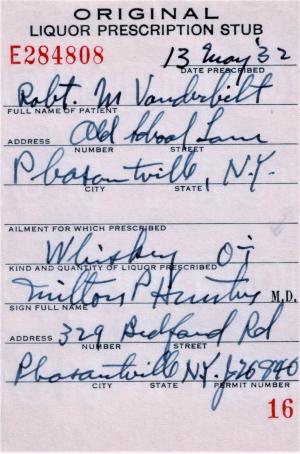 ORIGINAL
LIQUOR PRESCRIPTION STUB
E284808 13 May '32
DATE PRESCRIBED
Robt. M Vanderbilt
FULL NAME OF PATIENT
Old School Lane
ADDRESS NUMBER STREET
Pleasantville, N.Y.
CITY STATE
AILMENT FOR WHICH PRESCRIBED
Whiskey O
KIND AND QUANTITY OF LIQUOR PRESCRIBED
Milton P M.D.
SIGN FULL NAME
ADDRESS 329 Bedford Rd
NUMBER STREET
Pleasantville N.Y. 126840
CITY STATE PERMIT NUMBER
16